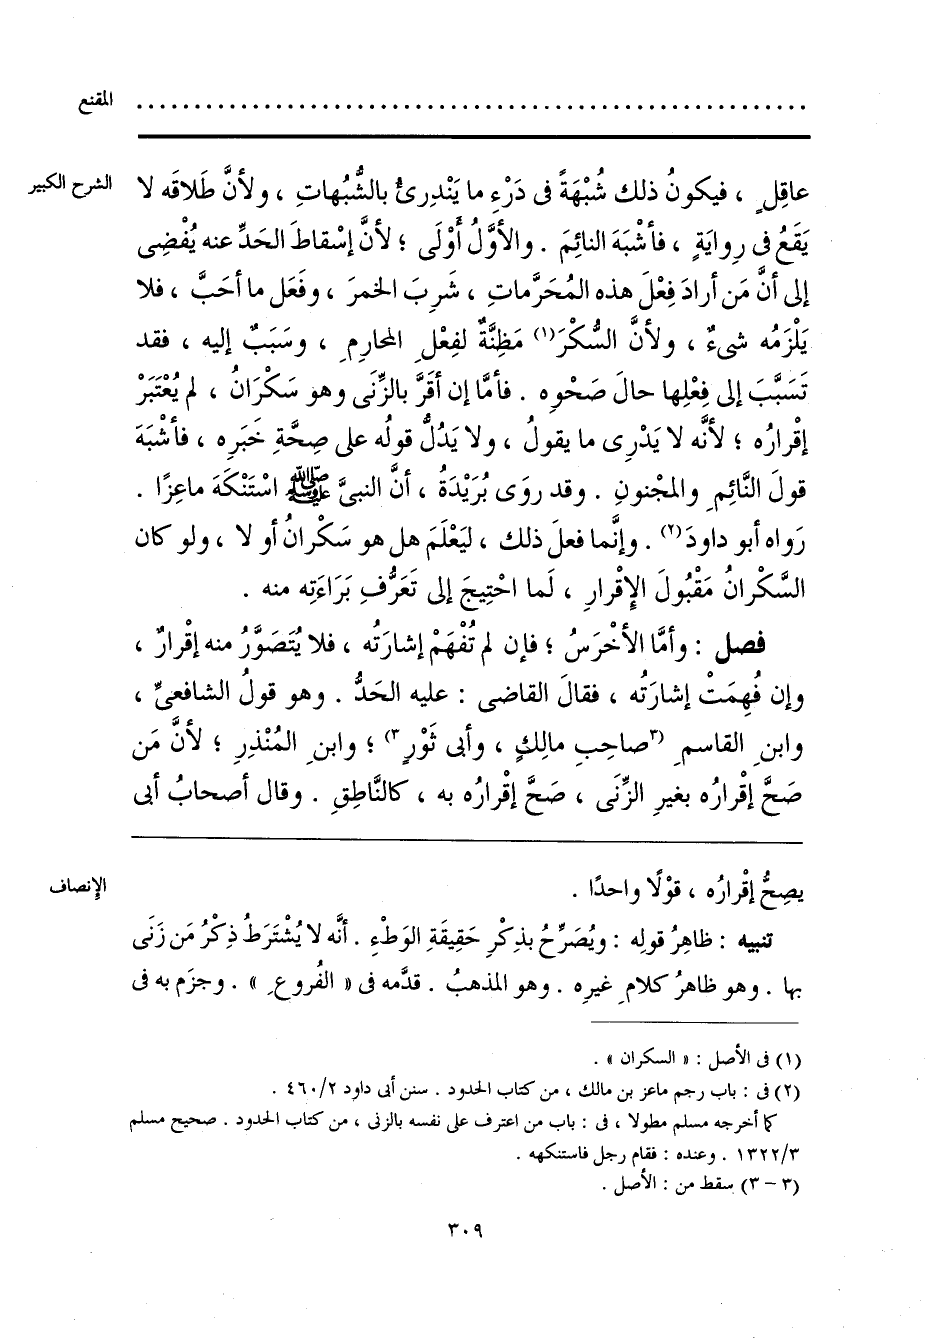 المقنع ........................................................
الشرح الكبير عاقِلٍ ، فيكونُ ذلك شُبْهَةً فى دَرْءِ ما يَنْدِرِئُ بالشُّبُهاتِ ، ولأنَّ طَلاقَه لا
يَقَعُ فى رِوايَةٍ ، فأشْبَهَ النائِمَ . والأوَّلُ أَوْلَى ؛ لأنَّ إسْقاطَ الحَدِّ عنه يُفْضِى
إلى أنَّ مَن أرادَ فِعْلَ هذه المُحَرَّماتِ ، شَرِبَ الخمرَ ، وفَعَل ما أحَبَّ ، فلا
يَلْزَمُه شىءٌ ، ولأنَّ السُّكْرَ(١) مَظِنَّةٌ لفِعْلِ المحارِمِ ، وسَبَبٌ إليه ، فقد
تَسَبَّبَ إلى فِعْلِها حالَ صَحْوِه . فأمَّا إن أقَرَّ بالزِّنَى وهو سَكْرَانُ ، لم يُعْتَبَرْ
إقْرارُه ؛ لأنَّه لا يَدْرِى ما يقولُ ، ولا يَدُلُّ قولُه على صِحَّةِ خَبَرِه ، فأشْبَهَ
قولَ النَّائِمِ والمجْنونِ . وقد روَى بُرَيْدَةُ ، أنَّ النبىَّ ﷺ اسْتَنْكَهَ ماعِزًا .
رَواه أبو داودَ(٢) . وإنَّما فعلَ ذلك ، ليَعْلَمَ هل هو سَكْرانُ أو لا ، ولو كان
السَّكْرانُ مَقْبُولَ الإِقْرارِ ، لَما احْتِيجَ إلى تَعَرُّفِ بَرَاءَتِه منه .
فصل : وأمَّا الأخْرَسُ ؛ فإن لم تُفْهَمْ إشارَتُه ، فلا يُتَصَوَّرُ منه إقْرارٌ ،
وإن فُهِمَتْ إشارَتُه ، فقالَ القاضى : عليه الحَدُّ . وهو قولُ الشافعىِّ ،
وابنِ القاسمِ (٣صاحِبِ مالِكٍ ، وأبى ثَوْرٍ٣) ؛ وابنِ المُنْذِرِ ؛ لأنَّ مَن
صَحَّ إقْرارُه بغيرِ الزِّنَى ، صَحَّ إقْرارُه به ، كالنَّاطِقِ . وقال أصحابُ أبى
الإنصاف يصِحُّ إقْرارُه ، قوْلًا واحدًا .
تنبيه : ظاهِرُ قولِه : ويُصَرِّحُ بذِكْرِ حَقِيقَةِ الوَطْءِ . أنَّه لا يُشْتَرَطُ ذِكْرُ مَن زَنَى
بها . وهو ظاهِرُ كلامِ غيرِه . وهو المذهبُ . قدَّمه فى « الفُروعِ » . وجزَم به فى
(١) فى الأصل : « السكران » .
(٢) فى : باب رجم ماعز بن مالك ، من كتاب الحدود . سنن أبى داود ٤٦٠/٢ .
كما أخرجه مسلم مطولا ، فى : باب من اعترف على نفسه بالزنى ، من كتاب الحدود . صحيح مسلم
١٣٢٢/٣ . وعنده : فقام رجل فاستنكهه .
(٣ – ٣) سقط من : الأصل .
٣٠٩